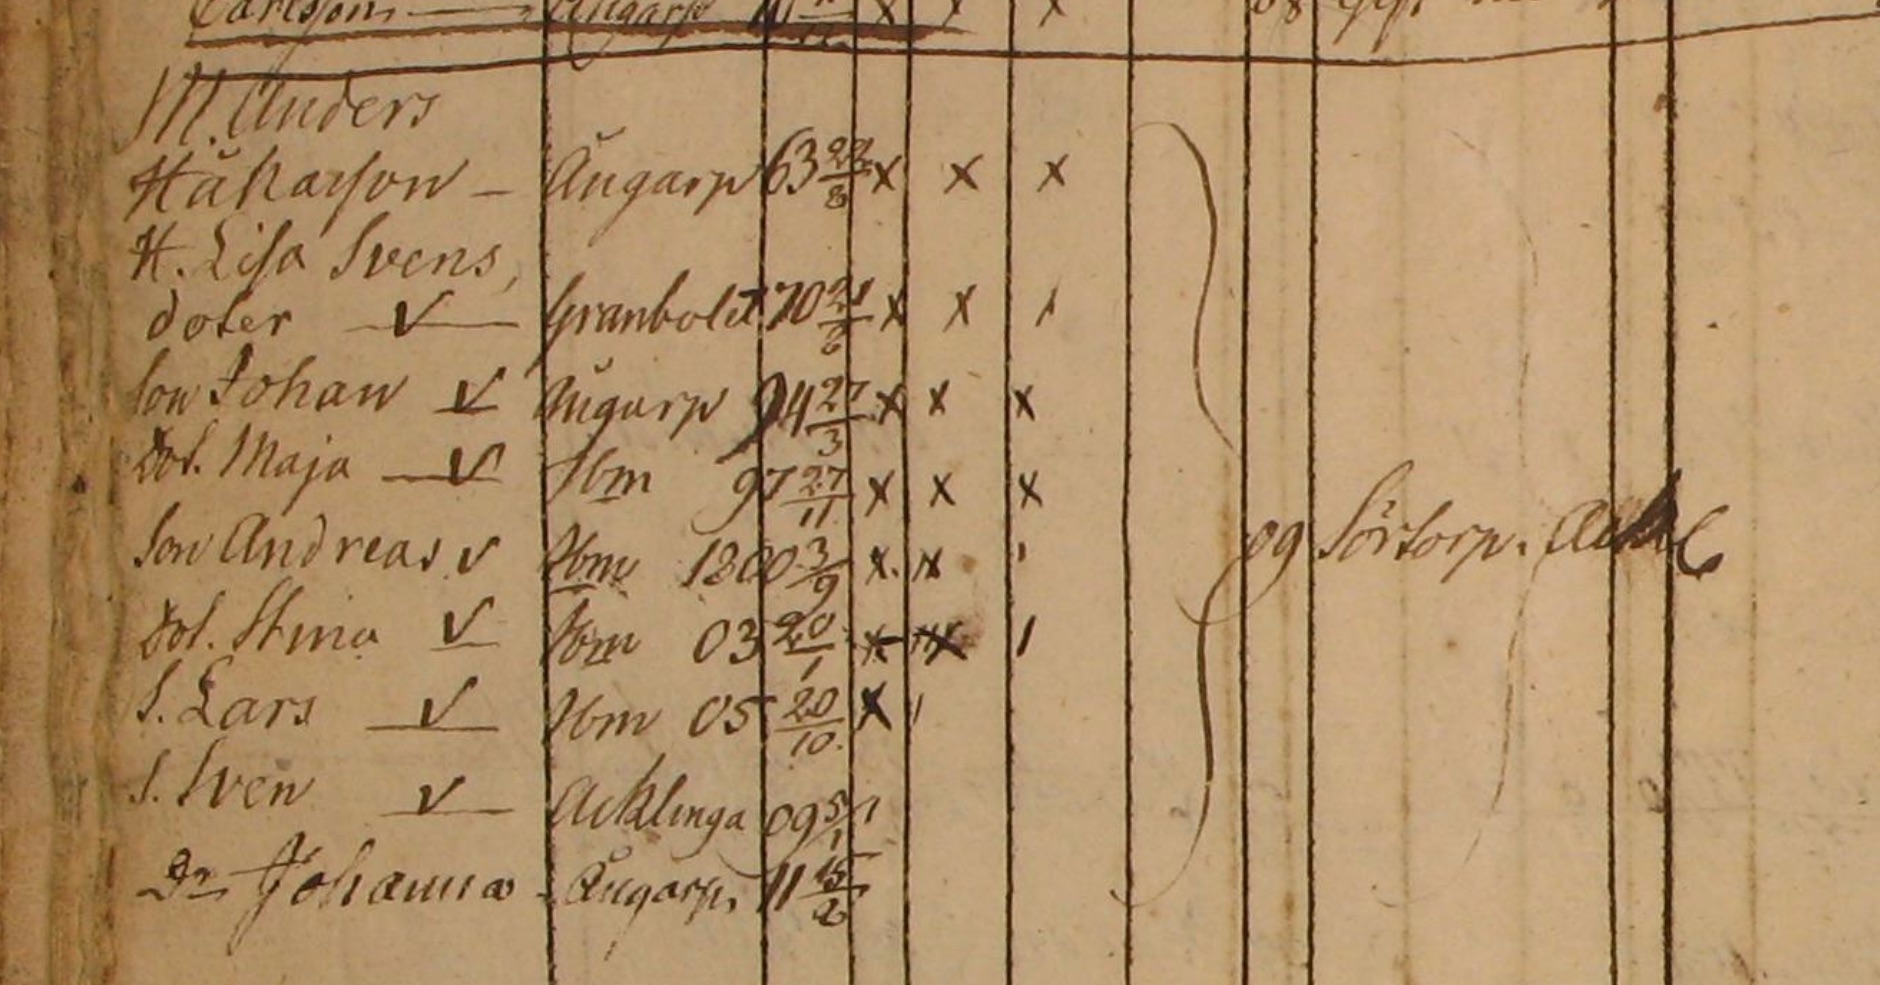 Carlsson Augarp x x x 08
M. Anders
Håkanson - Augarp 63 22/8 x x x
H. Lisa Svens,
doter √ Granbolet 70 21/8 x x /
Son Johan √ Augarp 94 27/3 x x x
Dot. Maja √ Ibm 97 27/11 x x x
Son Andreas √ Ibm 1800 3/9 x x ı 09 Sörtorp.
Dot. Stina √ Ibm 03 20/1 x x /
S. Lars √ Ibm 05 20/10 x ı
S. Sven √ Acklinga 09 5/1 ı
Dr Johanna - Augarp. 11 15/2